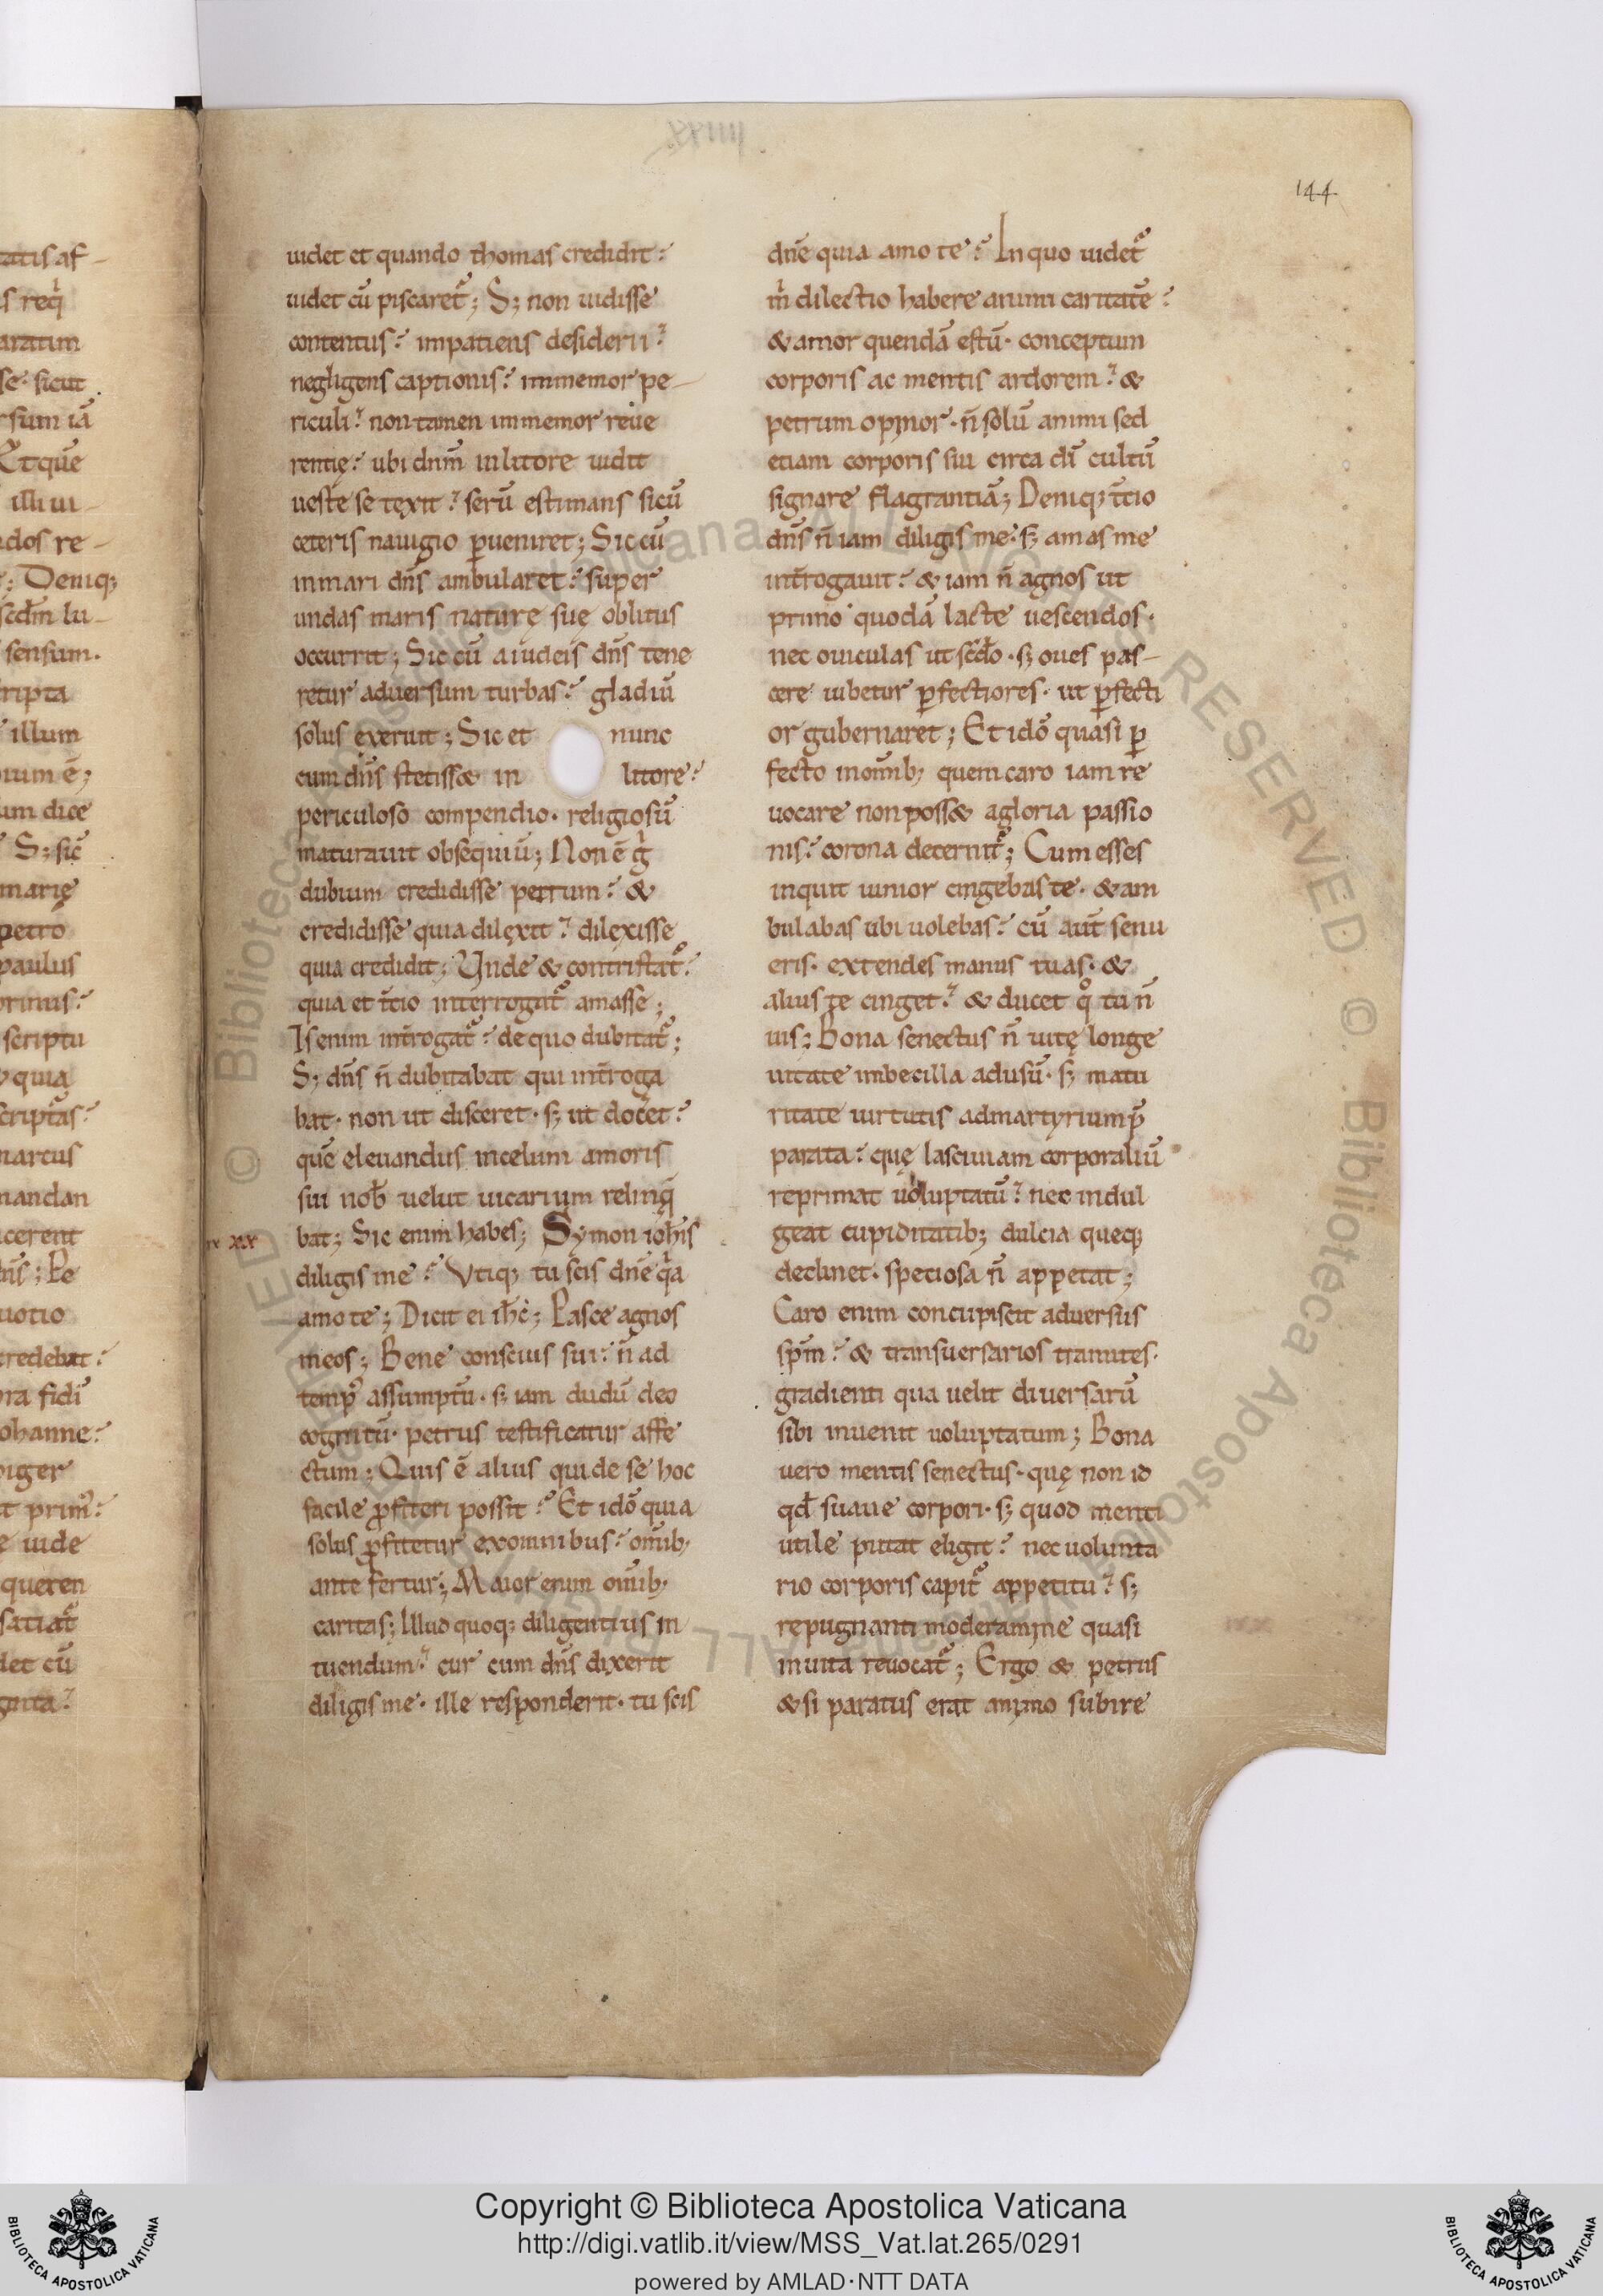 xxiiii
144
uidet et quando thomas credidit?
uidet cū piscaret᷑; S; non uidisse
contentus? impatiens desiderii?
negligens captionis? immemor pe-
riculi? non tamen immemor reue
rentię? ubi dnm̄ in litore uidit
ueste se texit? serū estimans si cū
ceteris nauigio ꝑueniret; Sic cū
in mari dns̄ ambularet? super
undas maris naturę suę oblitus
occurrit; Sic cū a iudeis dns̄ tene
retur aduersum turbas? gladiū
solus exeruit; Sic et nunc
cum dns̄ stetiss& in litore?
periculoso compendio· religiosū
maturauit obsequiū; Non ē g̍
dubium credidisse petrum? &
credidisse quia dilexit? dilexisse
quia credidit; Unde & contristat᷑?
quia et t̄cio interrogat᷑ amasse;
Is enim int̄rogat᷑? de quo dubitat᷑;
S; dns̄ n̄ dubitabat qui int̄roga
bat· non ut disceret· s; ut docet?
quē eleuandus in celum amoris
sui nob̄ uelut uicarium relinq̄
bat; Sic enim habes; Symon ioh̄is
xx
diligis me? Vtiq; tu scis dnē q̍a
amo te; Dicit ei ih̄c; Pasce agnos
meos; Bene conscius sui? n̄ ad
temp᷒ assumptū· s; iam dudū deo
cognitū· petrus testificatur affe
ctum; Quis ē alius qui de se hoc
facile ꝓfiteri possit? Et idō quia
solus ꝓfitetur ex omnibus? om̄ib;
ante fertur; Maior enim om̄ib;
caritas; Illud quoq; diligentius in
tuendum? cur cum dns̄ dixerit
diligis me· ille responderit· tu scis
dnē quia amo te? In quo uidet᷑
m̍ dilectio habere animi caritatē?
& amor quendā estū· conceptum
corporis ac mentis ardorem? &
petrum opinor· n̄ solū animi sed
etiam corporis sui circa dī cultū
signare flagrantiā; Deniq; t̄cio
dns̄ n̄ iam diligis me· s; amas me
int̄rogauit? & iam n̄ agnos ut
primo quodā lacte uescendos·
nec ouiculas ut scd̄o· s; oues pas-
cere iubetur ꝑfectiores· ut ꝑfecti
or gubernaret; Et idō quasi ꝑ
fecto in om̄ib; quem caro iam re
uocare non poss& a gloria passio
nis? corona decernit᷑; Cum esses
inquit iunior cingebas te· & am
bulabas ubi uolebas? cū aut̄ senu
eris· extendes manus tuas· &
alius te cinget? & ducet q̊ tu n̄
uis; Bona senectus n̄ uitę longe
uitate imbecilla ad usū· s; matu
ritate uirtutis ad martyrium p̄
parata? quę lasciuiam corporaliū
reprimat uoluptatū? nec indul
geat cupiditatib; dulcia queq;
declinet· speciosa n̄ appetat;
Caro enim concupiscit aduersus
spm̄? & transuersarios tramites·
gradienti qua uelit diuersarū
sibi inuenit uoluptatum; Bona
uero mentis senectus· quę non id
qd̄ suaue corpori· s; quod menti
utile putat eligit? nec uolunta
rio corporis capit᷑ appetitu? s;
repugnanti moderamine quasi
inuita reuocat᷑; Ergo & petrus
& si paratus erat animo subire
Copyright © Biblioteca Apostolica Vaticana
http://digi.vatlib.it/view/MSS_Vat.lat.265/0291
powered by AMLAD·NTT DATA
BIBLIOTECA APOSTOLICA VATICANA
BIBLIOTECA APOSTOLICA VATICANA